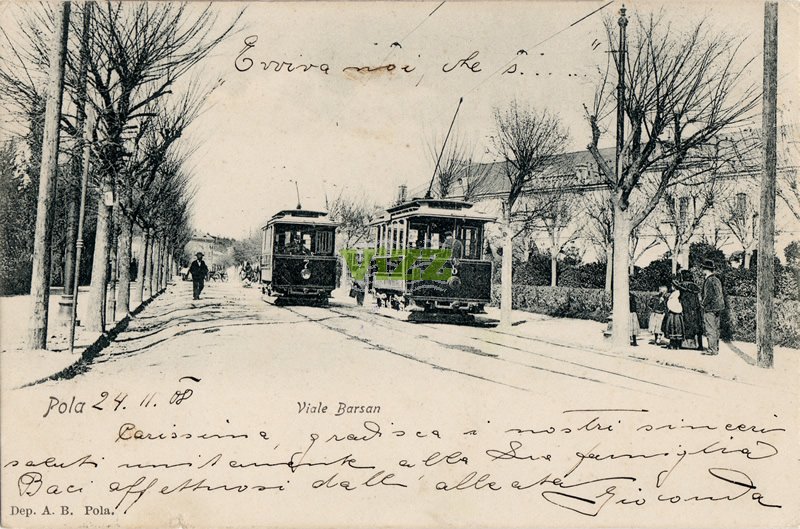 "Evviva noi, che s......"
VIEZ
Pola 24. 11. 08
Viale Barsan
Carissima, gradisca i nostri sinceri
saluti unitamente alla Sua famiglia
Baci affettuosi dall' alleata Gioconda
Dep. A. B. Pola.